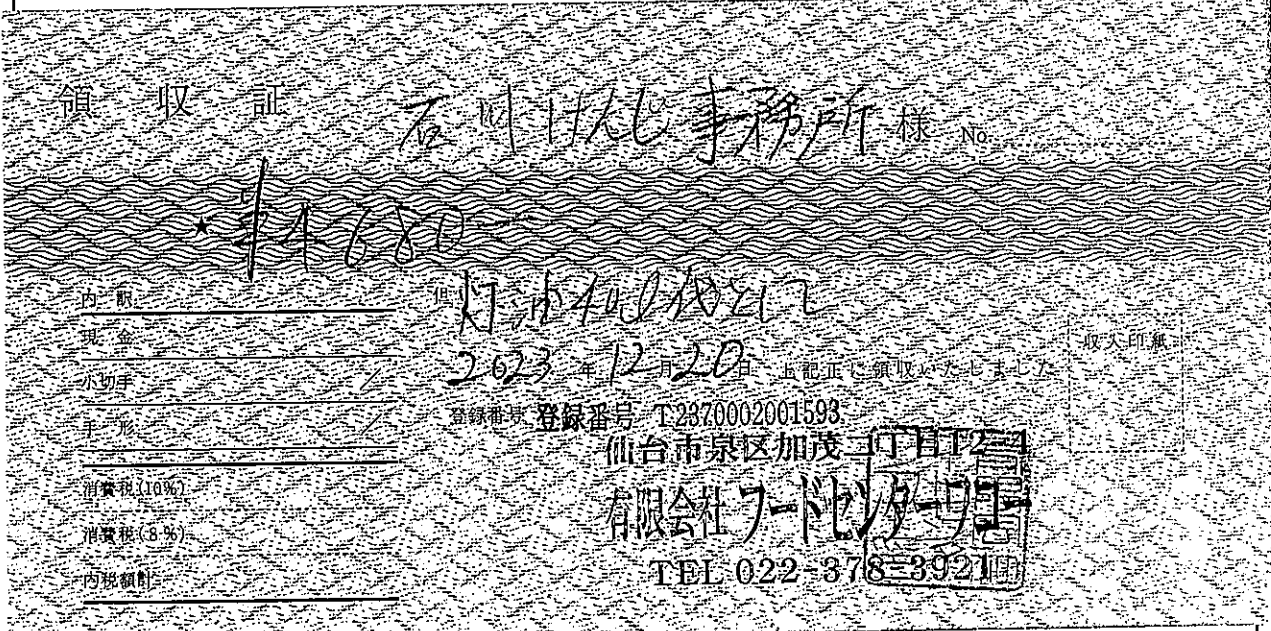 領収証 石川けんじ事務所 様 No.
★ ¥4680
内訳
現金
小切手
手形
消費税(10%)
消費税(8%)
内税額計
但 灯油40ℓ代として
2023年12月20日 上記正に領収いたしました
収入印紙
登録番号 登録番号 T2370002001593
仙台市泉区加茂二丁目12-4
有限会社フードセンターワコー
TEL 022-378-3921